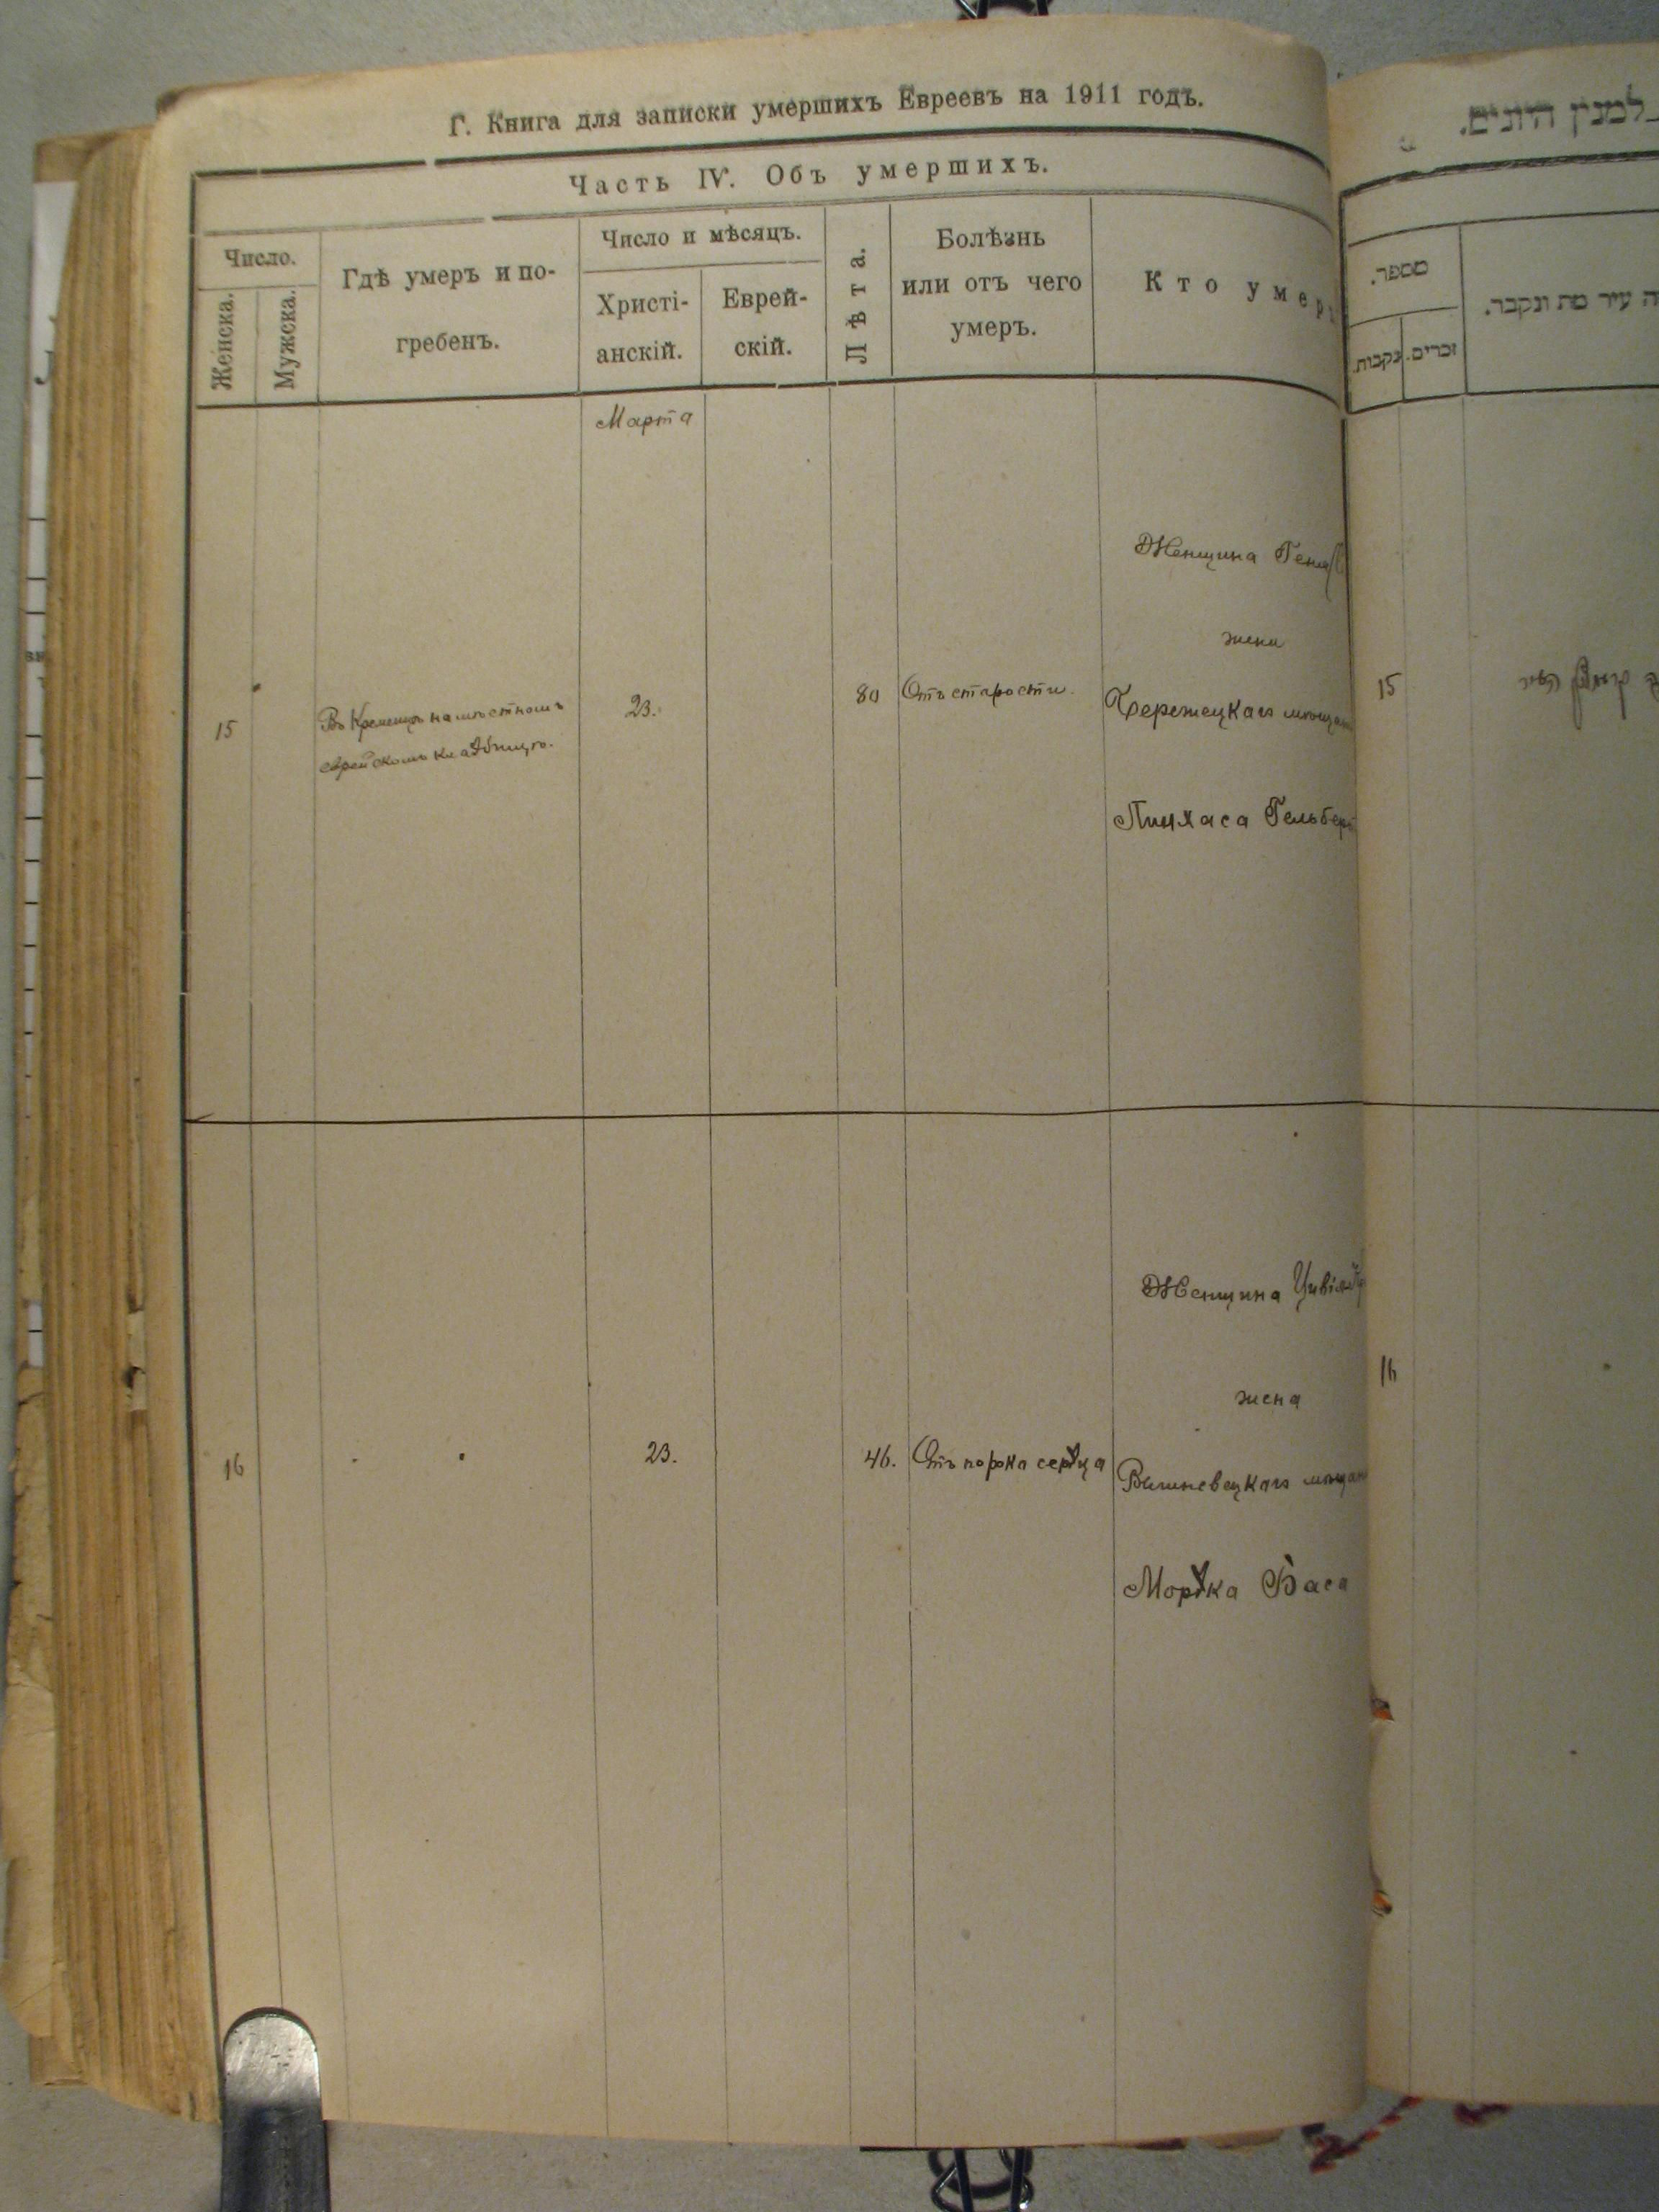 Г. Книга для записки умершихъ Евреевъ на 1911 годъ.
Часть IV. Объ умершихъ.
Число.
Женска.
Мужска.
Гдѣ умеръ и по-
гребенъ.
Число и мѣсяцъ.
Христі-
анскій.
Еврей-
скій.
Лѣта.
Болѣзнь
или отъ чего
умеръ.
Кто умер
Марта
15
Въ Кременцѣ на мѣстномъ
еврейскомъ кладбищѣ.
23.
80
Отъ старости.
Женщина Геня
жена
Бережецкаго мѣщан
Пинхаса Гельбер
16
23.
46.
Отъ порока сердца
Женщина Цивія
жена
Вишневецкаго мѣщан
Мордка Баса
למנין היונים.
מספר.
נקבות.
זכרים.
עיר מת ונקבר.
15
16